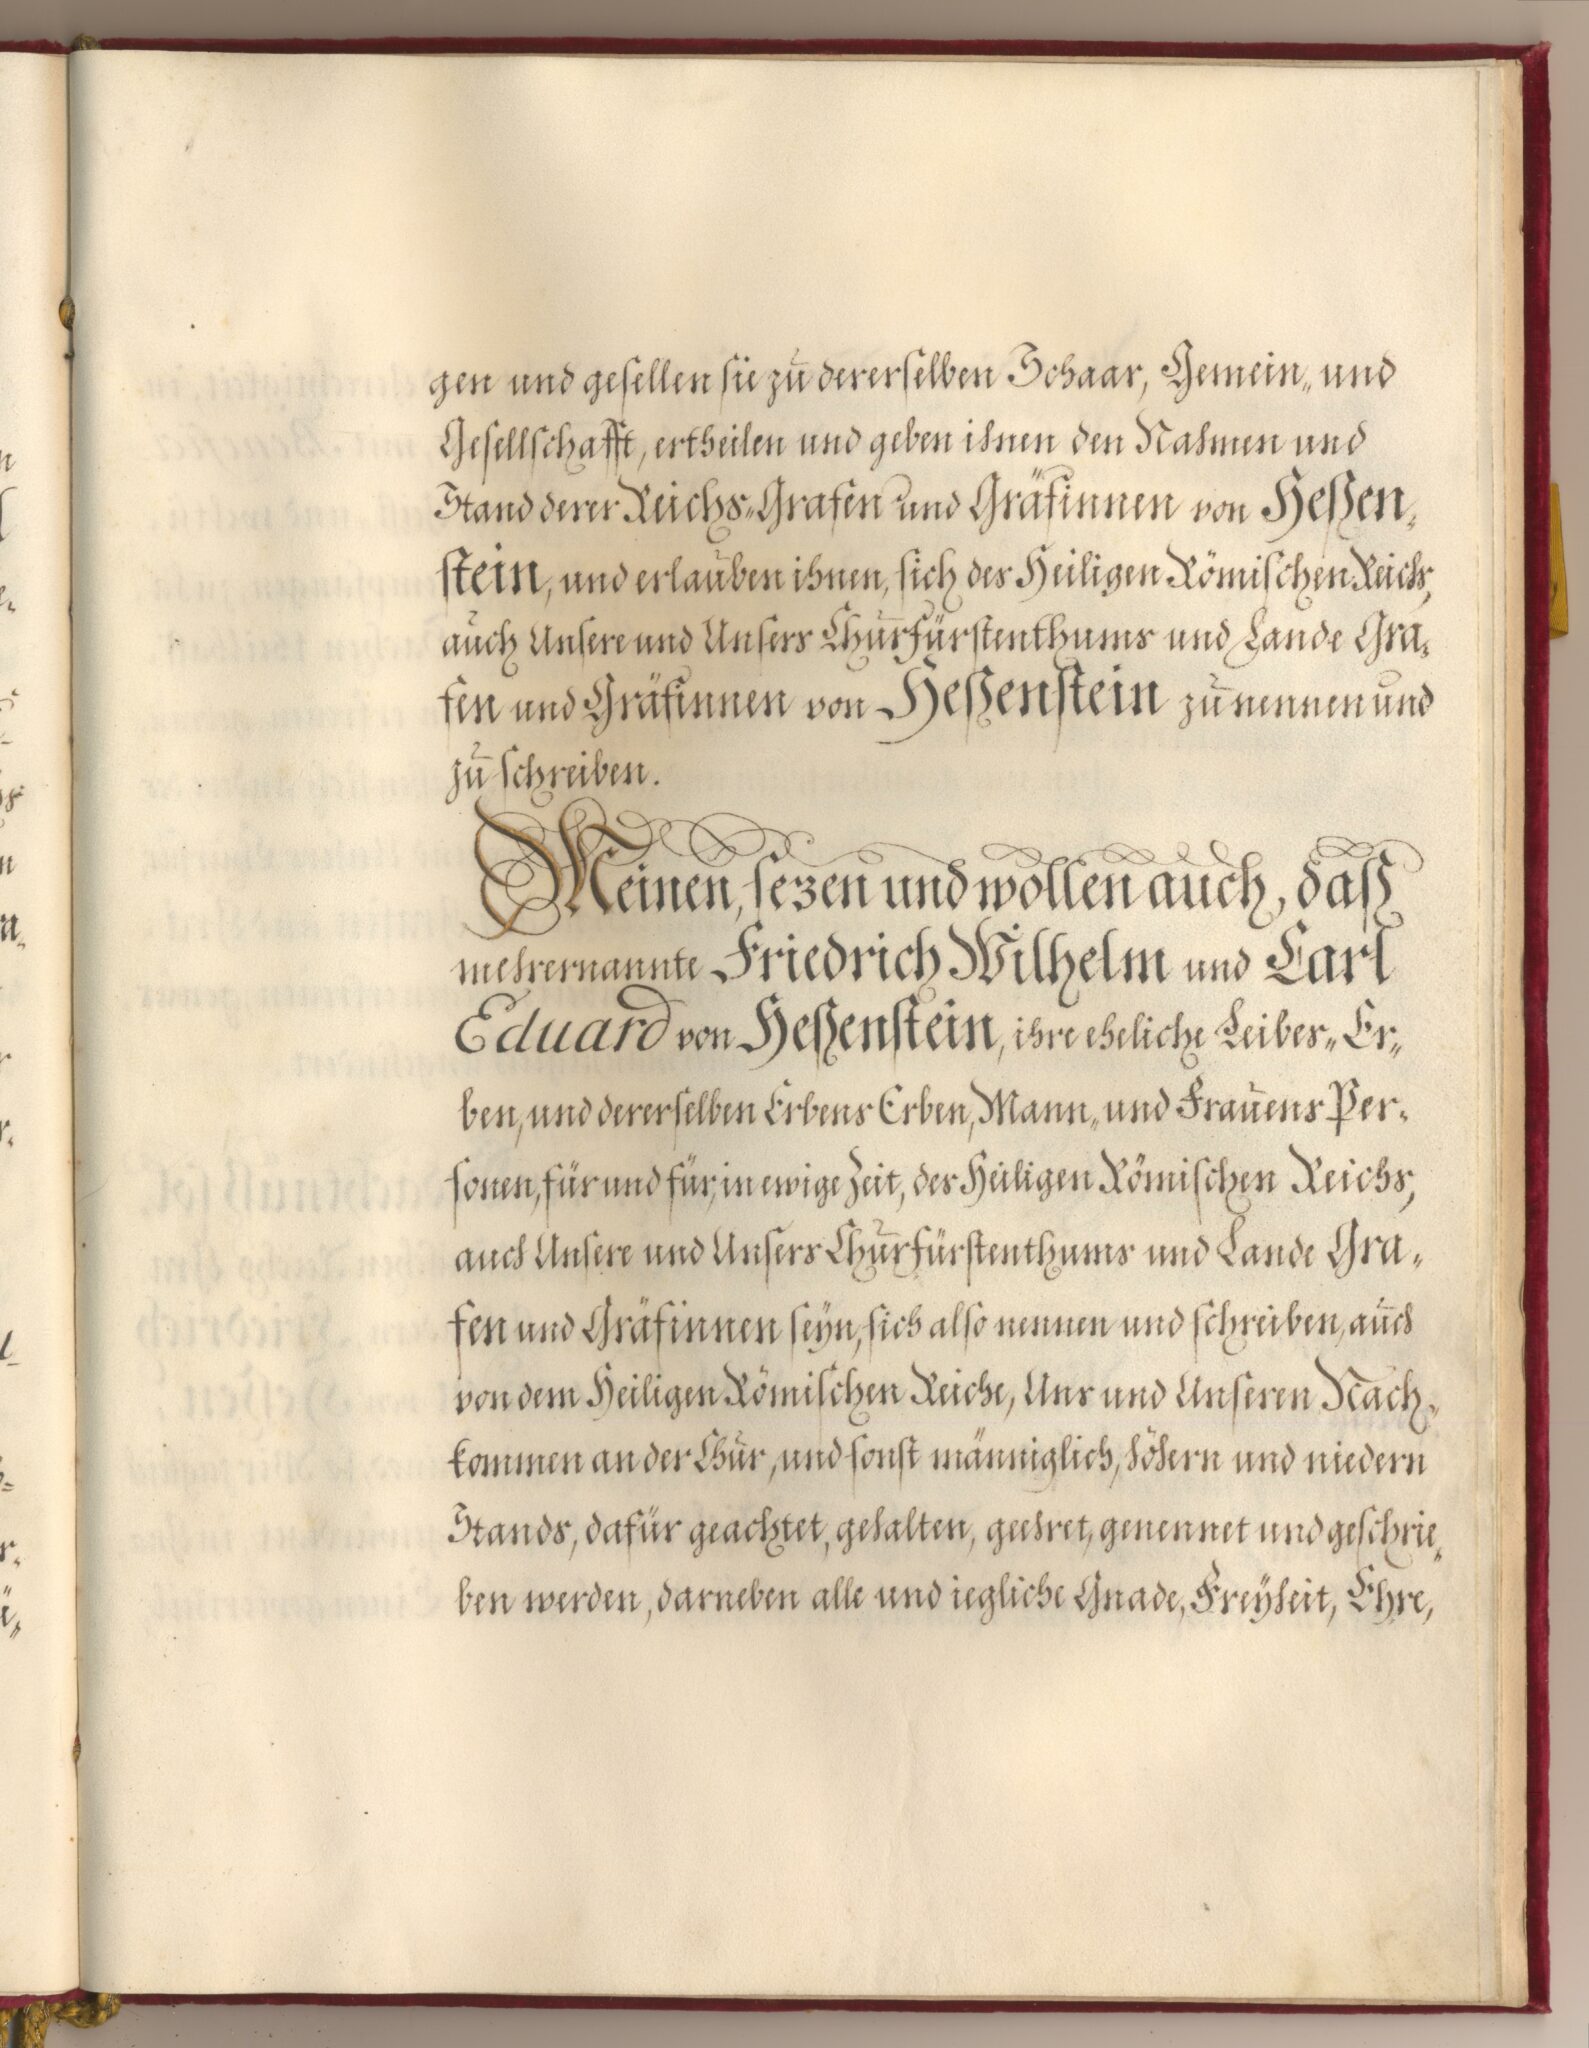 gen und gesellen sie zu dererselben Schaar, Gemein- und
Gesellschafft, ertheilen und geben ihnen den Nahmen und
Stand derer Reichs-Grafen und Gräfinnen von Heßen-
stein, und erlauben ihnen, sich des Heiligen Römischen Reichs,
auch Unsere und Unsers Churfürstenthums und Lande Gra-
fen und Gräfinnen von Heßenstein zu nennen und
zu schreiben.
Meinen, sezen und wollen auch, daß
mehrernannte Friedrich Wilhelm und Carl
Eduard von Heßenstein, ihre eheliche Leibes-Er-
ben, und dererselben Erbens Erben, Mann- und Frauens Per-
sonen, für und für, in ewige Zeit, des Heiligen Römischen Reichs,
auch Unsere und Unsers Churfürstenthums und Lande Gra-
fen und Gräfinnen seyn, sich also nennen und schreiben, auch
von dem Heiligen Römischen Reiche, Uns und Unseren Nach-
kommen an der Chur, und sonst männiglich, höhern und niedern
Stands, dafür geachtet, gehalten, geehret, genennet und geschrie-
ben werden, darneben alle und iegliche Gnade, Freyheit, Ehre,